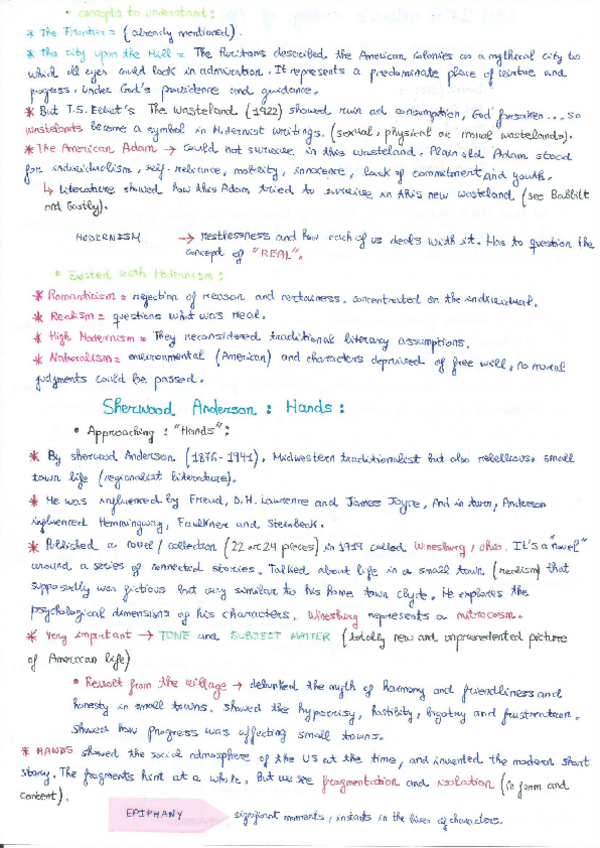 • Concepts to understand:
* The Frontier = (already mentioned).
* The city upon the Hill = The Puritans described the American colonies as a mythical city to
which all eyes could look in admiration. It represents a predominate place of virtue and
progress. Under God's providence and guidance.
* But T.S. Elliot's The Wasteland (1922) showed ruin and consumption, God forsaken... so
wastelands became a symbol in Modernist writings. (sexual, physical or moral wastelands).
* The American Adam → could not survive in this wasteland. Plain old Adam stood
for individualism, self-reliance, mobility, innocence, lack of commitment and youth.
↳ Literature showed how this Adam tried to survive in this new wasteland (see Babbitt
and Gastly).
MODERNISM → restlessness and how each of us deals with it. Has to question the
concept of "REAL".
• Existed with Modernism:
* Romanticism = rejection of reason and certainess. concentrated on the individual.
* Realism = questions what was real.
* High Modernism = They reconsidered traditional literary assumptions.
* Naturalism = environmental (American) and characters deprived of free will, no moral
judgments could be passed.
Sherwood Anderson: Hands:
• Approaching: "Hands":
* By Sherwood Anderson (1876-1941). Midwestern traditionalist but also rebellious. small
town life (regionalist literature).
* He was influenced by Freud, D.H. Lawrence and James Joyce. And in turn, Anderson
influenced Hemmingway, Faulkner and Steinbeck.
* Published a novel / collection (22 or 24 pieces) in 1919 called Winesburg, Ohio. It's a "novel"
around a series of connected stories. Talked about life in a small town (realism) that
supposedly was fictious but very similar to his home town Clyde. He explores the
psychological dimensions of his characters. Winesburg represents a microcosm.
* Very important → TONE and SUBJECT MATTER (totally new and unprecedented picture
of American life)
• Revolt from the village → debunked the myth of harmony and friendliness and
honesty in small towns. Showed the hypocrisy, hostility, bigotry and frustration.
Showed how progress was affecting small towns.
* HANDS showed the social atmosphere of the US at the time, and invented the modern short
story. The fragments hint at a whole. But we see fragmentation and isolation (in form and
content).
EPIPHANY significant moments, instants in the lives of characters.